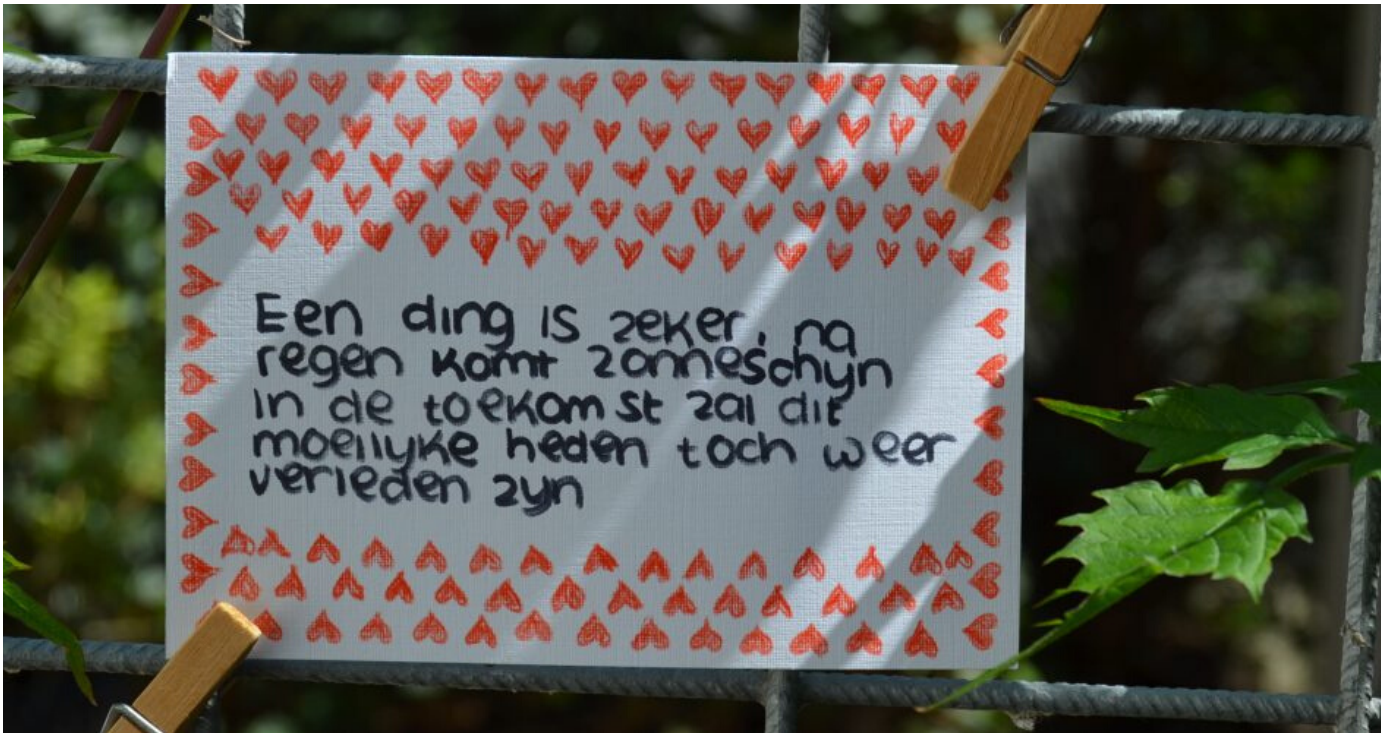 Een ding is zeker, na
regen komt zonneschijn
in de toekomst zal dit
moeilijke heden toch weer
verleden zijn